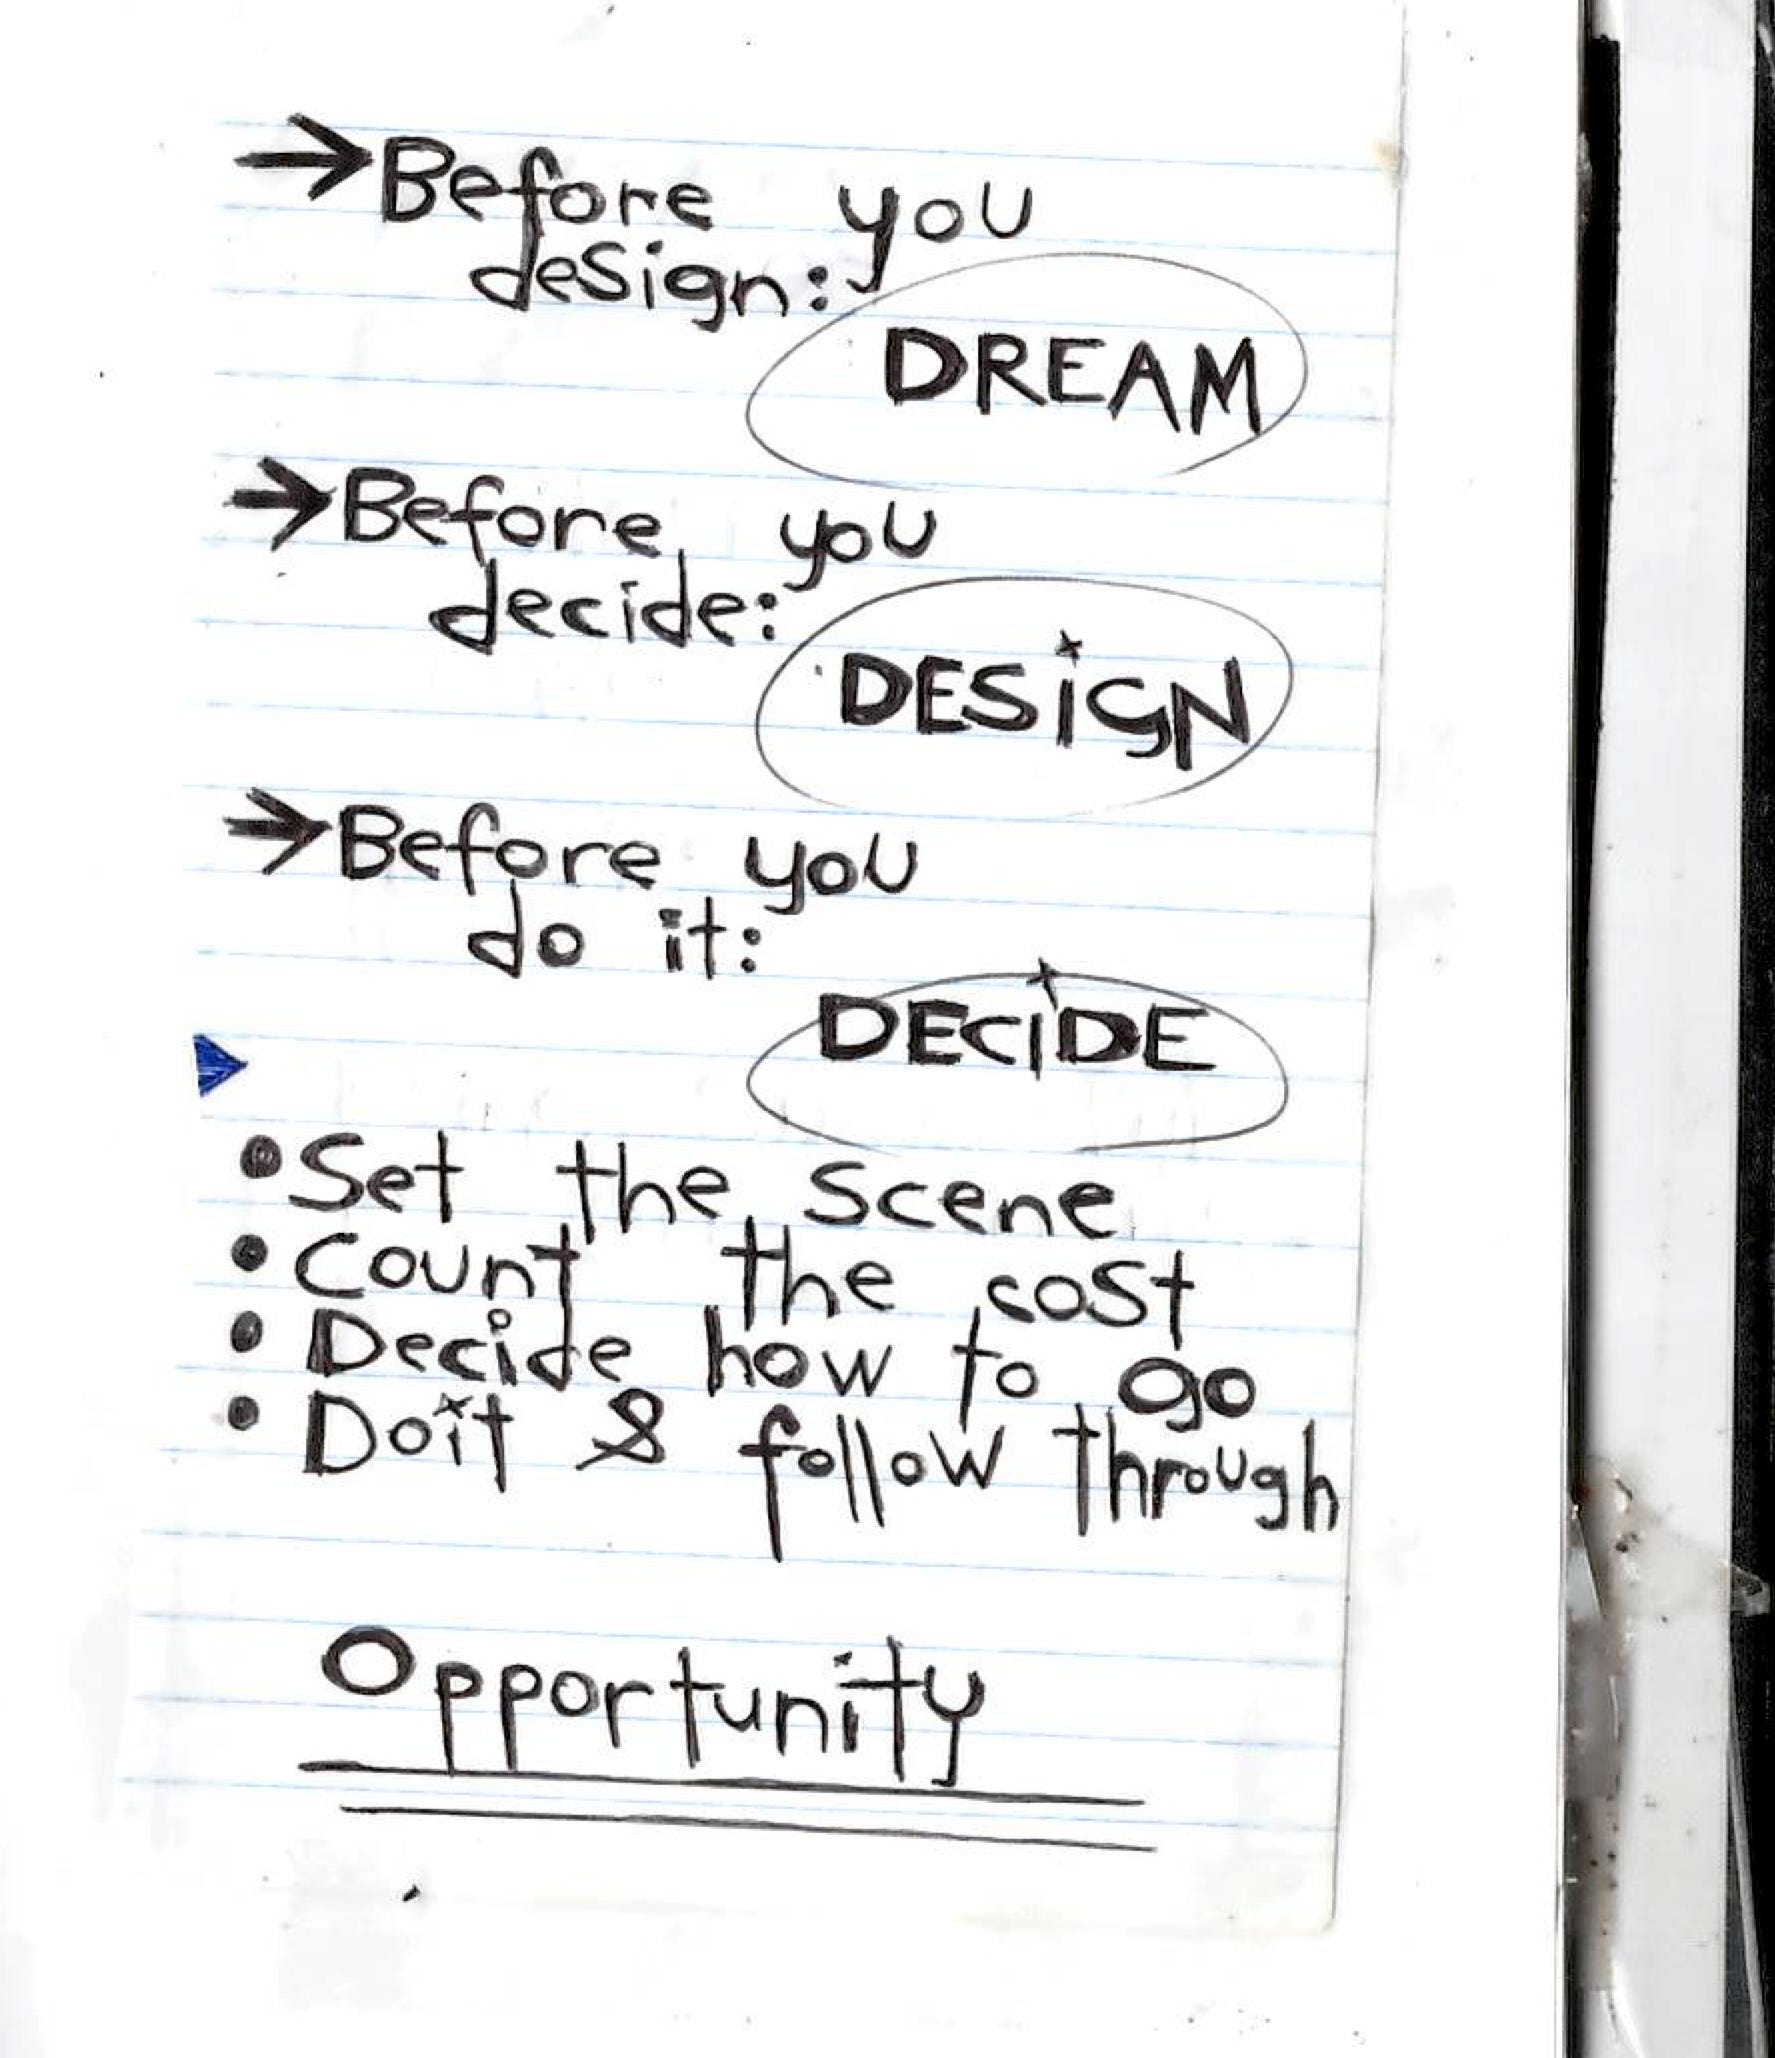 →Before you
design:
DREAM
→Before you
decide:
DESiGN
→Before you
do it:
DECiDE
•Set the scene
•Count the cost
•Decide how to go
•Doit & follow through
Opportunity